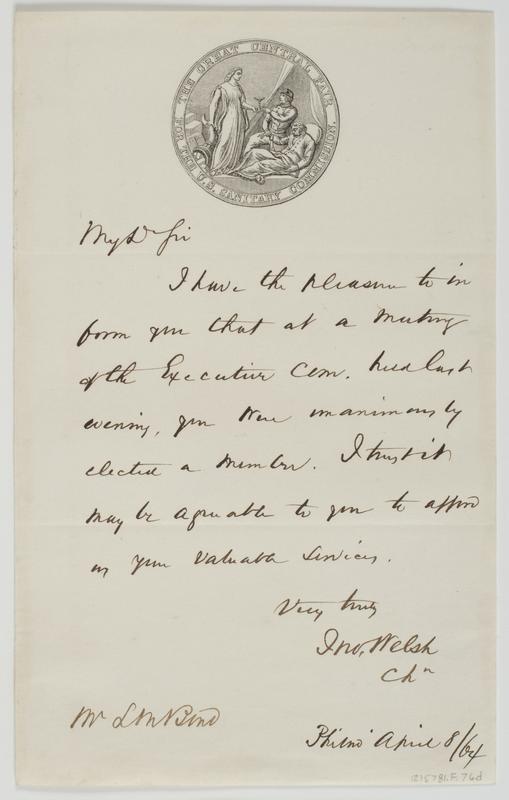 THE GREAT CENTRAL FAIR
FOR THE U.S. SANITARY COMMISSION.
My Dr Sir
I have the pleasure to in
form you that at a meeting
of the Executive Com. held last
evening, you were unanimously
elected a member. I trust it
may be agreeable to you to afford
us your valuable services.
Very truly
Jno. Welsh
Chn
Mr L M Bond
Philad April 8/64
1215781.F.76d